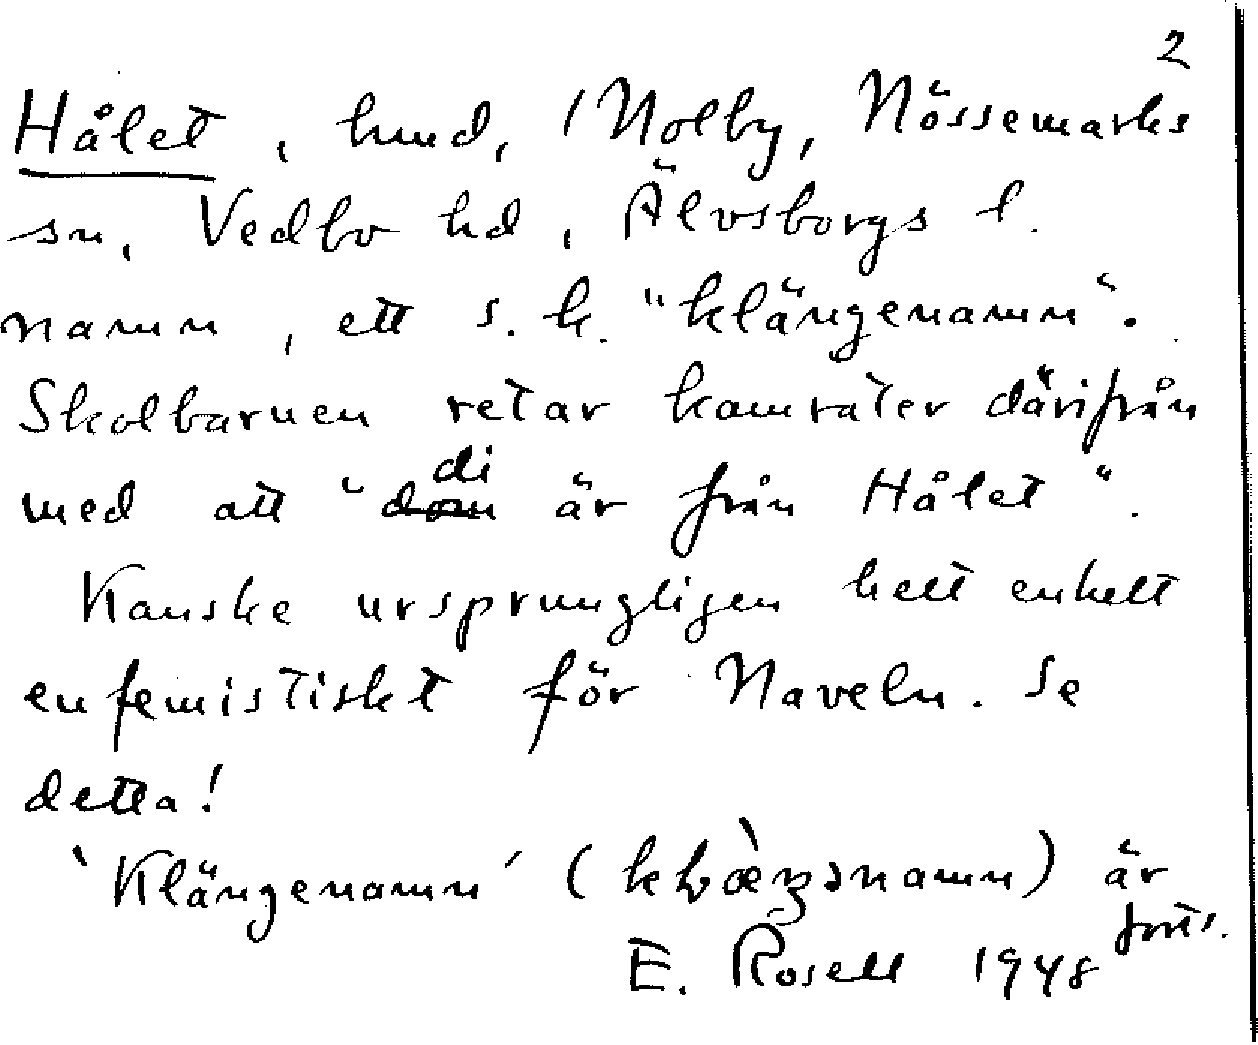 2
Hålet, hmd, 1 Nolby, Nössemarks
sn, Vedbo hd, Älvsborgs l.
namn, ett s.k. "klängenamn".
Skolbarnen retar kamrater därifrån
med att "dom di är från Hålet".
Kanske ursprungligen helt enkelt
eufemistiskt för Naveln. Se
detta!
'Klängenamn' ( ) är
forts.
E. Rosell 1948